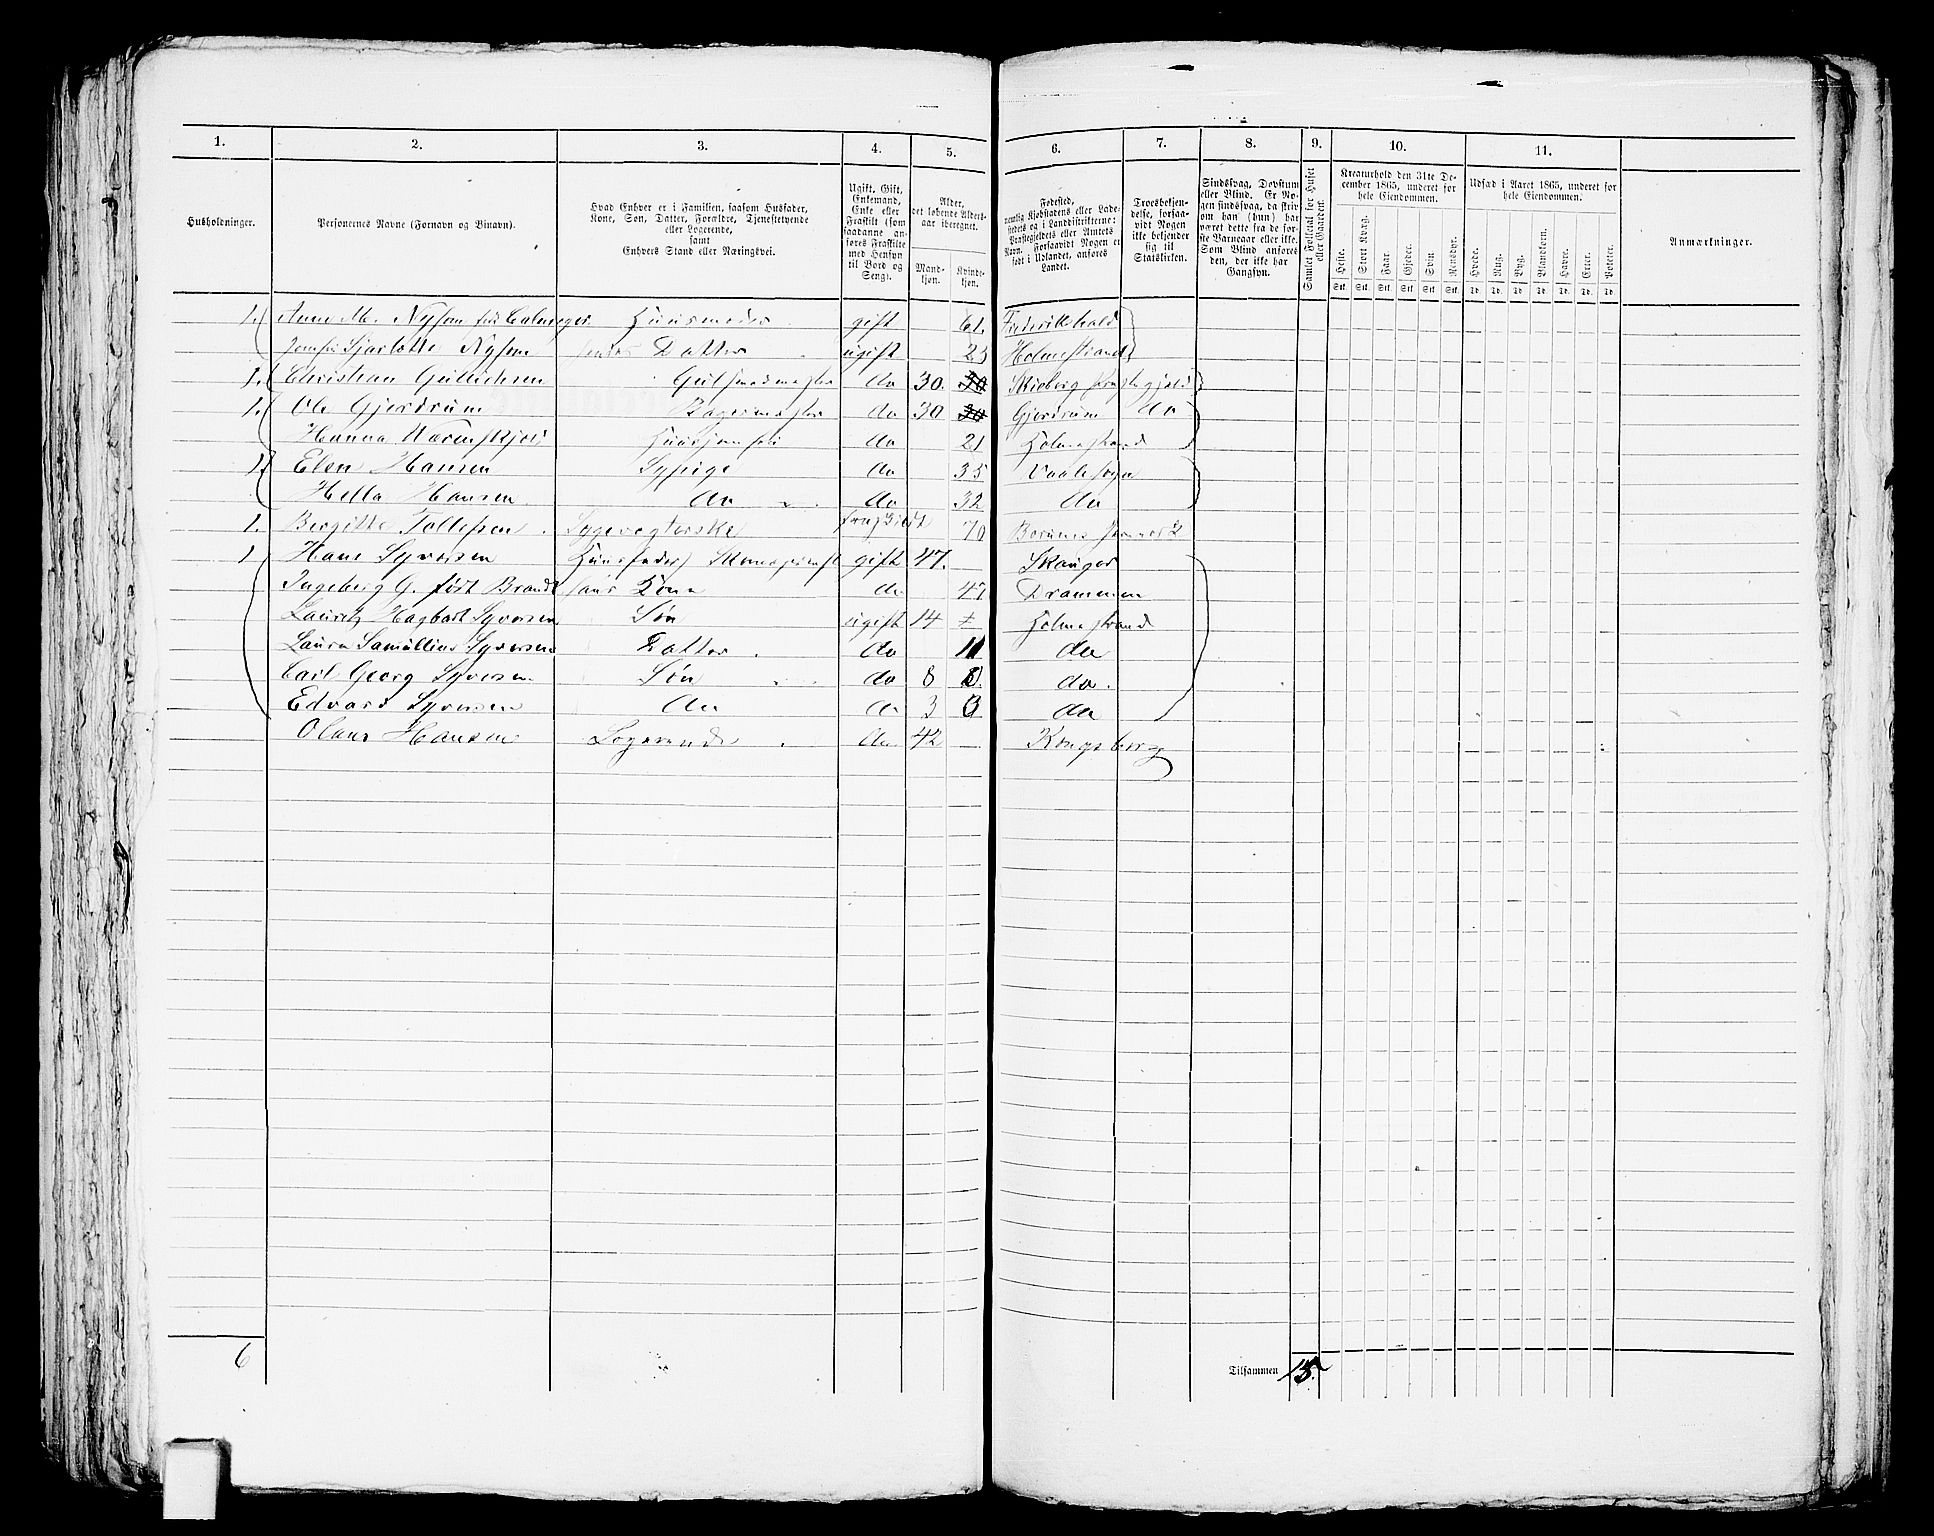 1. 2. 3. 4. 5. 6. 7. 8. 9. 10. 11.
Husholdninger.
Personernes Navne (Fornavn og Tilnavn).
Hvad Enhver er i Familien, saasom Husfader,
Kone, Søn, Datter, Forældre, Tjenestetyende
eller Logerende,
samt
Enhvers Stand eller Næringsvei.
Ugift, Gift,
Enkemand,
Enke eller
Fraskilt (som
saadanne an-
føres Fraskilte
med Hensyn
til Bord og
Seng).
Alder,
det løbende Alders-
aar iberegnet.
Mand-
kjøn.
Kvinde-
kjøn.
Fødested,
nemlig Kjøbstadens eller Lade-
stedets og i Landdistrikterne:
Præstegjeldets eller Amtets
Navn. Forsaavidt Nogen er
født i Udlandet, anføres
Landet.
Troesbekjen-
delse, forsaa-
vidt Nogen
ikke bekjender
sig til
Statskirken.
Sindssvag, Døvstum
eller Blind. Er No-
gen sindssvag, da skriv
om han (hun) har
været dette fra de før-
ste Barneaar eller ikke.
Som Blind anføres
den, der ikke har
Gangsyn.
Gamlet Folketal for Huset
eller Gaarden.
Kreaturhold den 31te De-
cember 1865, underet for
hele Eiendommen.
Heste. Stort Kvæg. Faar. Gjeder. Svin. Rensdyr.
Stk. Stk. Stk. Stk. Stk. Stk.
Udsæd i Aaret 1865, underet for
hele Eiendommen.
Hvede. Rug. Byg. Blandkorn. Havre. Erter. Poteter.
Td. Td. Td. Td. Td. Td. Td.
Anmærkninger.
1. Anne M. Nysom Huusmoder gift 61. Frederikhald
Jomfru Sjarlotte Nysom Datter ugift 23 Holmestrand
1. Christian Gullichsen Gulsmedmester do 30. 30 Skieberg
1. Ole Gjerdrum Bagermester do 30 30 Gjerdrum do
Hanna Huusjomfru do 21 Holmestrand
1 Elen Hansen Sypige do 35 Vaale sogn
Hella Hansen do do 32 do
1. Bergitte Tollefsen Sygevogterske 70
1 Hans Syversen Huusfader gift 47. Skauger
Ingeberg G. født Brandt hans Kone do 47 Drammen
Lauritz Hagbart Syversen Søn ugift 14 Holmestrand
Laura Syversen Datter do 11 do
Carl Georg Syversen Søn do 8 do.
Edvard Syversen do do 3 do
Olaus Hansen Logerende do 42 Kongsberg
6
Tilsammen 15.